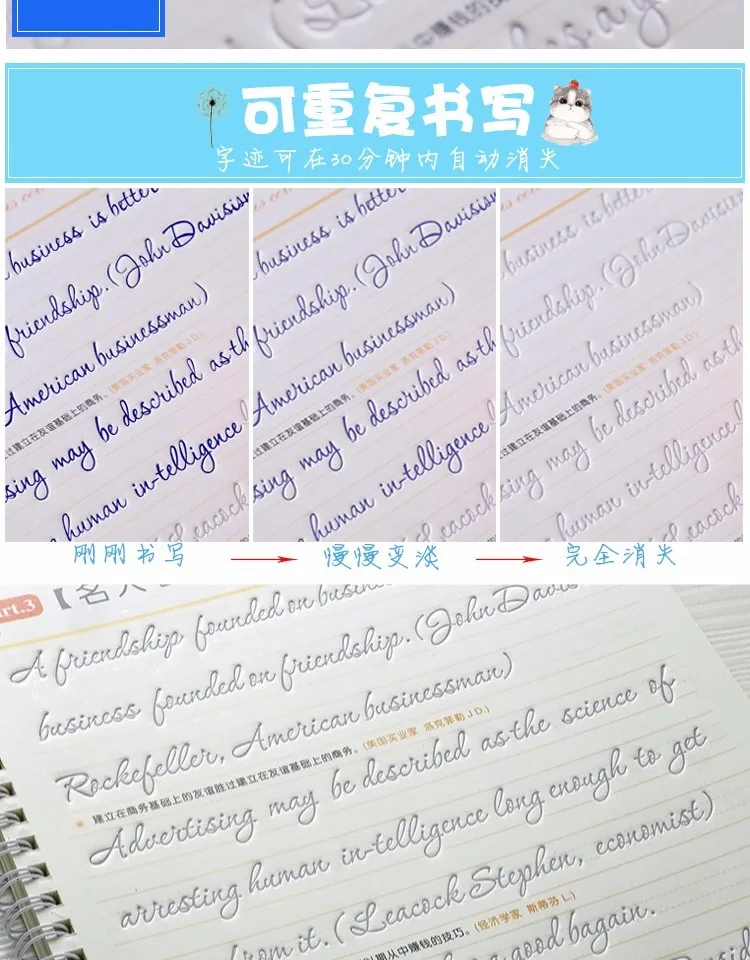 中赚钱的技
可重复书写
字迹可在30分钟内自动消失
business is better
friendship. (John Davisisn
American businessman)
(美国实业家 洛克菲勒 J D.)
过建立在友谊基础上的商务。
sing may be described as th
human in-telligence
Leacock
business is better
friendship. (John Davisisn
American businessman)
(美国实业家 洛克菲勒 J D.)
过建立在友谊基础上的商务。
sing may be described as th
human in-telligence
Leacock
business is better
friendship. (John Davisisn
American businessman)
(美国实业家 洛克菲勒 J D.)
过建立在友谊基础上的商务。
sing may be described as th
human in-telligence
Leacock
刚刚书写
慢慢变淡
完全消失
art.3
【名人
A friendship founded on busin
business founded on friendship. (John Davis
Rockefeller, American businessman)
建立在商务基础上的友谊胜过建立在友谊基础上的商务。(美国实业家 洛克菲勒 J D.)
Advertising may be described as the science of
arresting human in-telligence long enough to get
from it. (Leacock Stephen, economist)
期从中赚钱的技巧。(经济学家 斯蒂芬 L.)
a good bagain.